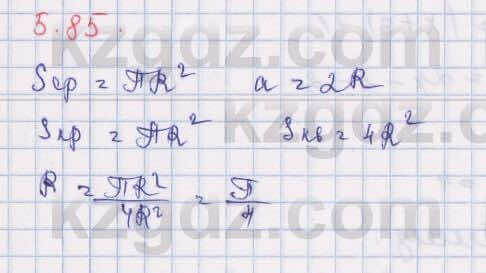 5.85.
Sкр = πR² a = 2R
Sкр = πR² Sкв = 4R²
P = πR²/4R² = π/4
kzgdz.com
kzgdz.com
kzgdz.com